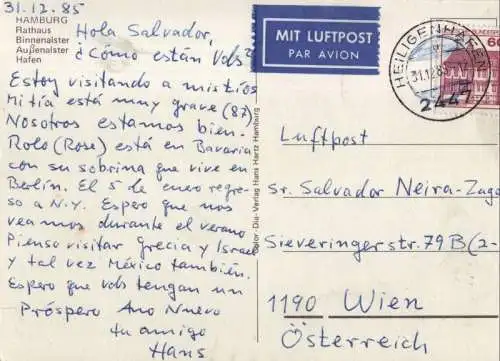 31.12.85
HAMBURG
Rathaus
Binnenalster
Außenalster
Hafen
Hola Salvador,
¿Cómo están Vds?
Estoy visitando a mis tíos
Mi tía está muy grave (87)
Nosotros estamos bien.
Rolo (Rose) está en Bavaria
con su sobrina que vive en
Berlín. El 5 de enero regre-
so a N.Y. Espero que nos
veamos durante el verano
Pienso visitar Grecia y Israel
y tal vez México también.
Espero que Vds tengan un
Próspero Ano Nuevo
tu amigo
Hans
Color-Dia-Verlag Hans Hartz Hamburg
MIT LUFTPOST
PAR AVION
HEILIGENHAFEN
31.12.85
2447
60
Luftpost
Sr. Salvador Neira-Zuga
Sieveringerstr. 79 B (2-
1190 Wien
Österreich